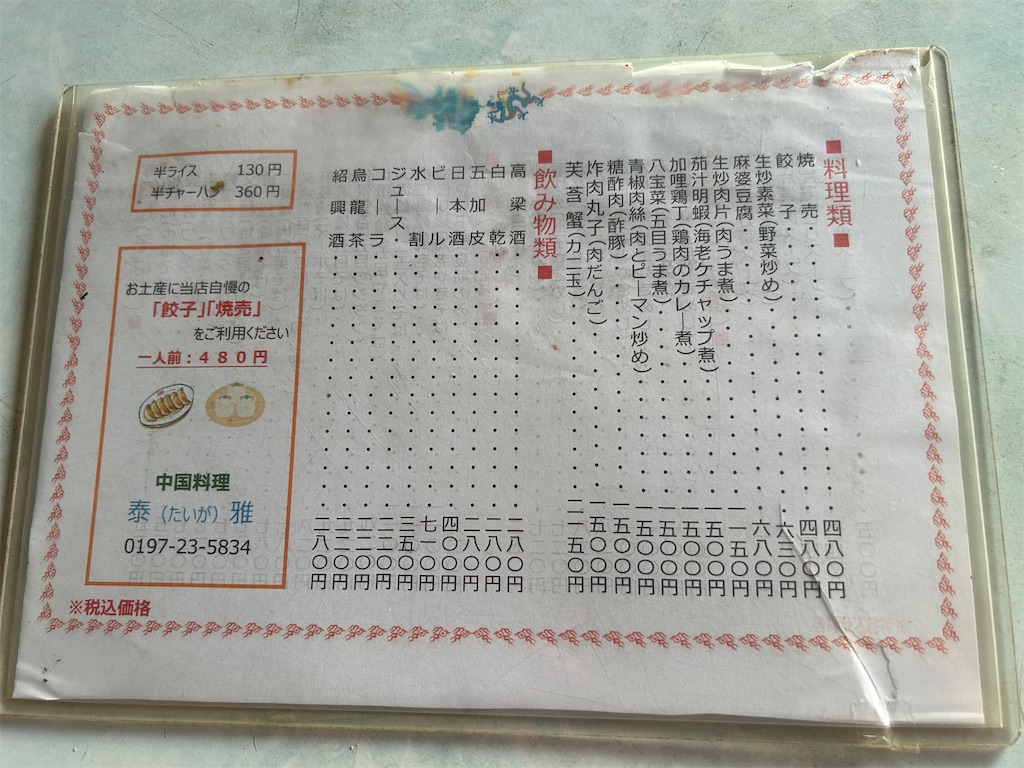 ■料理類■
焼売 四八〇円
餃子 四八〇円
生炒素菜(野菜炒め) 六三〇円
麻婆豆腐 六八〇円
生炒肉片(肉うま煮) 一一五〇円
茄汁明蝦(海老ケチャップ煮) 一五〇〇円
加哩鶏丁(鶏肉のカレー煮) 一五〇〇円
八宝菜(五目うま煮) 一五〇〇円
青椒肉絲(肉とピーマン炒め) 一五〇〇円
糖酢肉(酢豚) 一五〇〇円
炸肉丸子(肉だんご) 一五〇〇円
芙蓉蟹(カニ玉) 一一五〇円
■飲み物類■
高粱酒 二八〇円
白乾 二八〇円
五加皮 二八〇円
日本酒 四〇〇円
ビール 七一〇円
水割 三五〇円
ジュース 二二〇円
コーラ 二二〇円
烏龍茶 二二〇円
紹興酒 二八〇円
半ライス 130円
半チャーハン 360円
お土産に当店自慢の
「餃子」「焼売」
をご利用ください
一人前：４８０円
中国料理
泰（たいが）雅
0197-23-5834
※税込価格